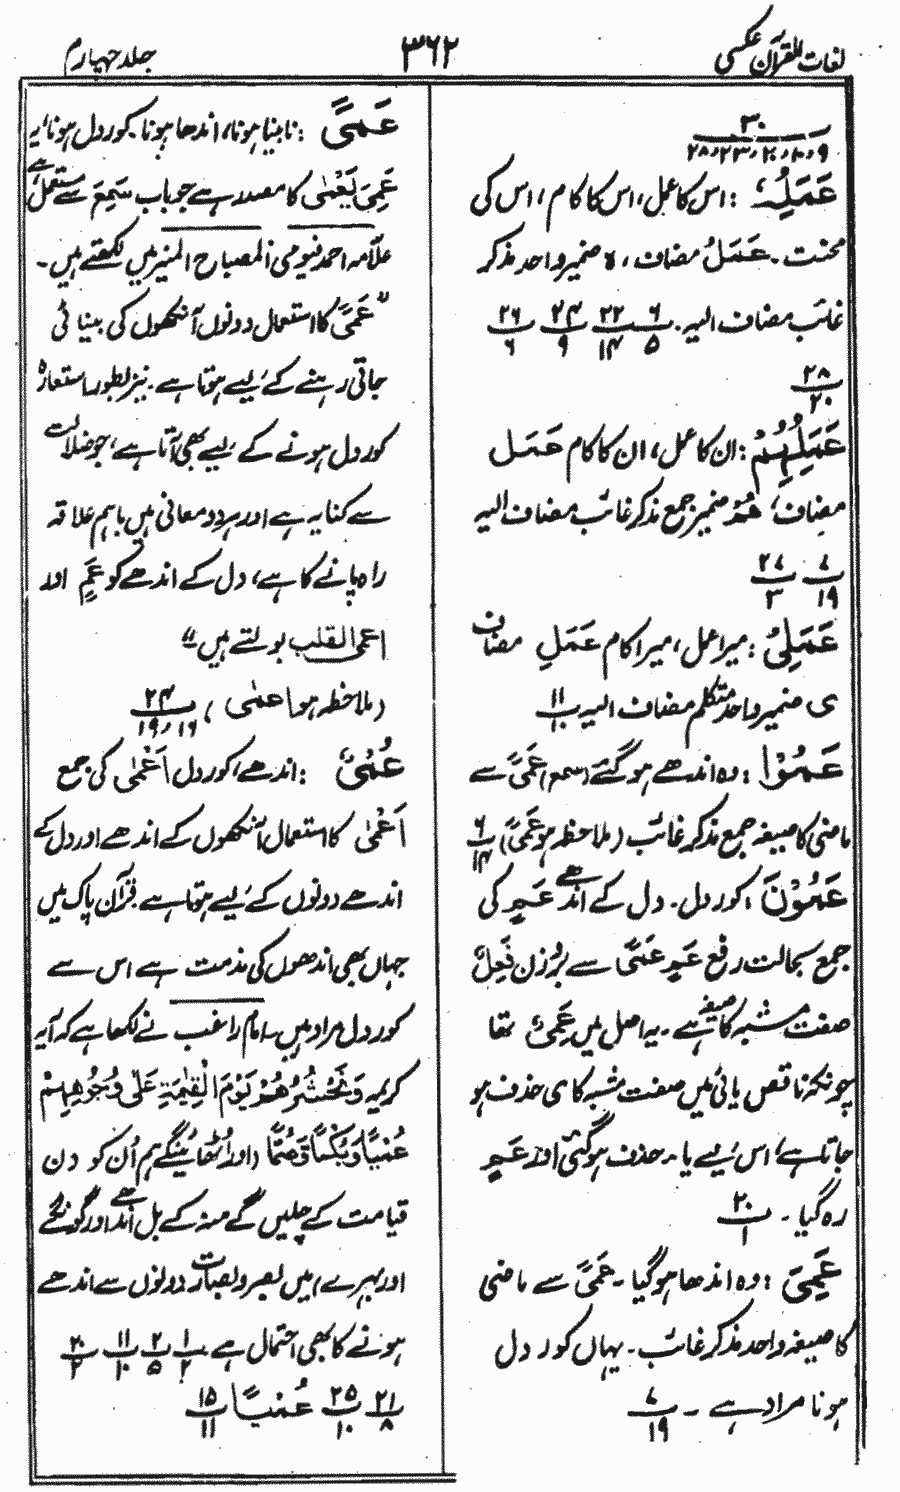 لغات القرآن عکسی
۳۶۲
جلد چہارم
۳۰
۹، ۱۰، ۲۰، ۲۳، ۲۸
عَمَلِهٖ : اس کا عمل، اس کا کام، اس کی
محنت۔ عَمَلِ مضاف، ہ ضمیر واحد مذکر
غائب مضاف الیہ۔ ۶/۵ ۲۲/۱۴ ۲۴/۹ ۲۶/۶
۲۸/۲۰
عَمَلِهِمْ : ان کا عمل، ان کا کام عَمَل
مضاف، هُمْ ضمیر جمع مذکر غائب مضاف الیہ
۷/۱۹ ۲۷/۳
عَمَلِیْ : میرا عمل، میرا کام عَمَلِ مضاف
ی ضمیر واحد متکلم مضاف الیہ ۱۱/۱۰
عَمُوْا : وہ اندھے ہوگئے (سمع) عَمًی سے
ماضی کا صیغہ جمع مذکر غائب (ملاحظہ ہو عَمًی) ۶/۱۴
عَمُوْنَ : کور دل۔ دل کے اندھے عَمٍ کی
جمع بحالت رفع عَمٍ عَمًی سے بروزن فَعِلٌ
صفت مشبہ کا صیغہ ہے۔ یہ اصل میں عَمِیٌ تھا
چونکہ ناقص یائی میں صفت مشبہ کا ی حذف ہو
جاتا ہے، اس لیے یاء حذف ہوگئی اور عَمٍ
رہ گیا۔ ۲۰/۱
عَمِیَ : وہ اندھا ہوگیا۔ عَمًی سے ماضی
کا صیغہ واحد مذکر غائب۔ یہاں کور دل
ہونا مراد ہے۔ ۷/۱۹
عَمًی : نابینا ہونا، اندھا ہونا۔ کور دل ہونا، یہ
عَمِیَ یَعْمٰی کا مصدر ہے جو باب سَمِعَ سے مستعمل ہے
علّامہ احمد فیومی المصباح المنیر میں لکھتے ہیں۔
”عَمًی کا استعمال دونوں آنکھوں کی بینائی
جاتی رہنے کے لیے ہوتا ہے۔ نیز بطور استعارہ
کور دل ہونے کے لیے بھی آتا ہے، جو ضلالت
سے کنایہ ہے اور ہر دو معانی میں باہم علاقہ
راہ پانے کا ہے، دل کے اندھے کو عَمٍ اور
اعمی القلب بولتے ہیں“
(ملاحظہ ہو اعمٰی)، ۲۴/۱۶، ۱۹
عُمْیٌ : اندھے، کور دل اَعْمٰی کی جمع
اَعْمٰی کا استعمال آنکھوں کے اندھے اور دل کے
اندھے دونوں کے لیے ہوتا ہے۔ قرآن پاک میں
جہاں بھی اندھوں کی مذمت ہے اس سے
کور دل مراد ہیں۔ امام راغب نے لکھا ہے کہ آیہ
کریمہ وَنَحْشُرُهُمْ یَوْمَ الْقِیٰمَةِ عَلٰی وُجُوْهِهِمْ
عُمْیًا وَّبُکْمًا وَّصُمًّا (اور اٹھائینگے ہم اُن کو دن
قیامت کے چلیں گے منہ کے بل اندھے اور گونگے
اور بہرے) میں بصر و بصارت دونوں سے اندھے
ہونے کا بھی احتمال ہے۔ ۱/۲ ۲/۵ ۱۱/۱۰ ۲۰/۲
۲۱/۸ ۲۵/۱۰ عُمْیًا ۱۵/۱۱